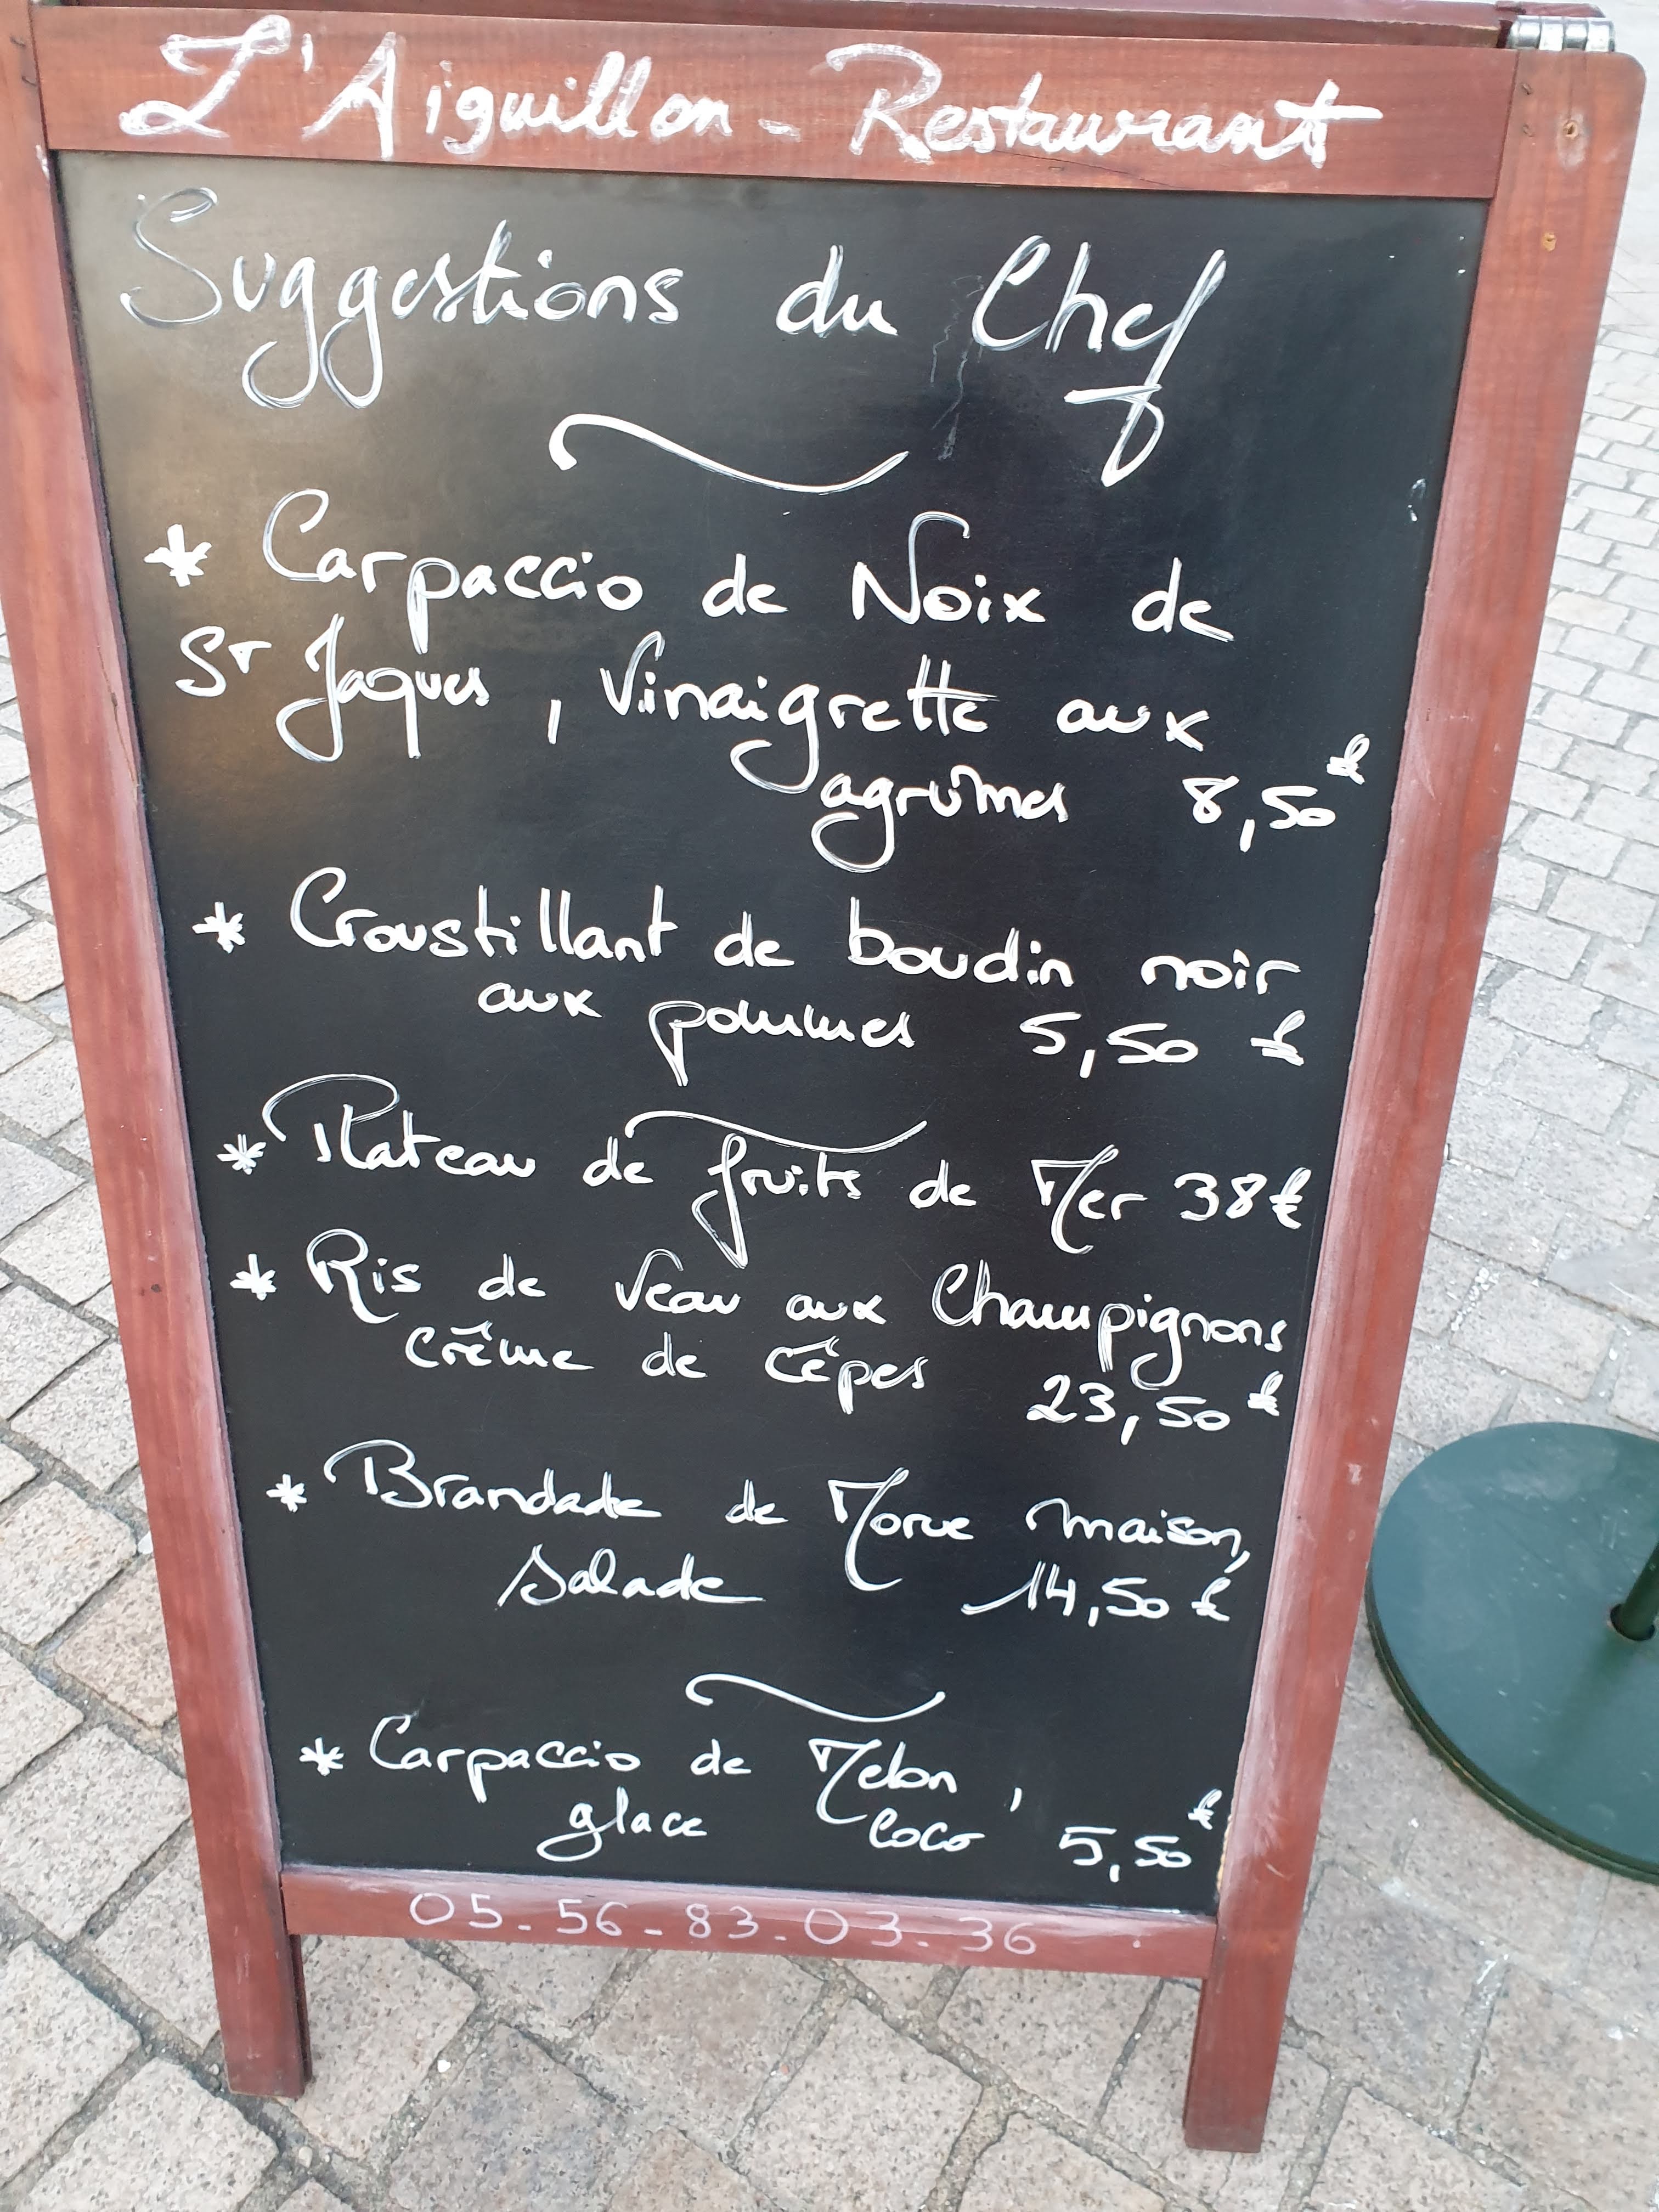 L'Aiguillon - Restaurant
Suggestions du Chef
* Carpaccio de Noix de
St Jaques, Vinaigrette aux
agrumes 8,50€
* Croustillant de boudin noir
aux pommes 5,50 €
* Plateau de fruits de Mer 38€
* Ris de Veau aux Champignons
crème de cêpes 23,50€
* Brandade de Morue maison,
salade 14,50 €
* Carpaccio de Melon,
glace coco 5,50€
05.56.83.03.36